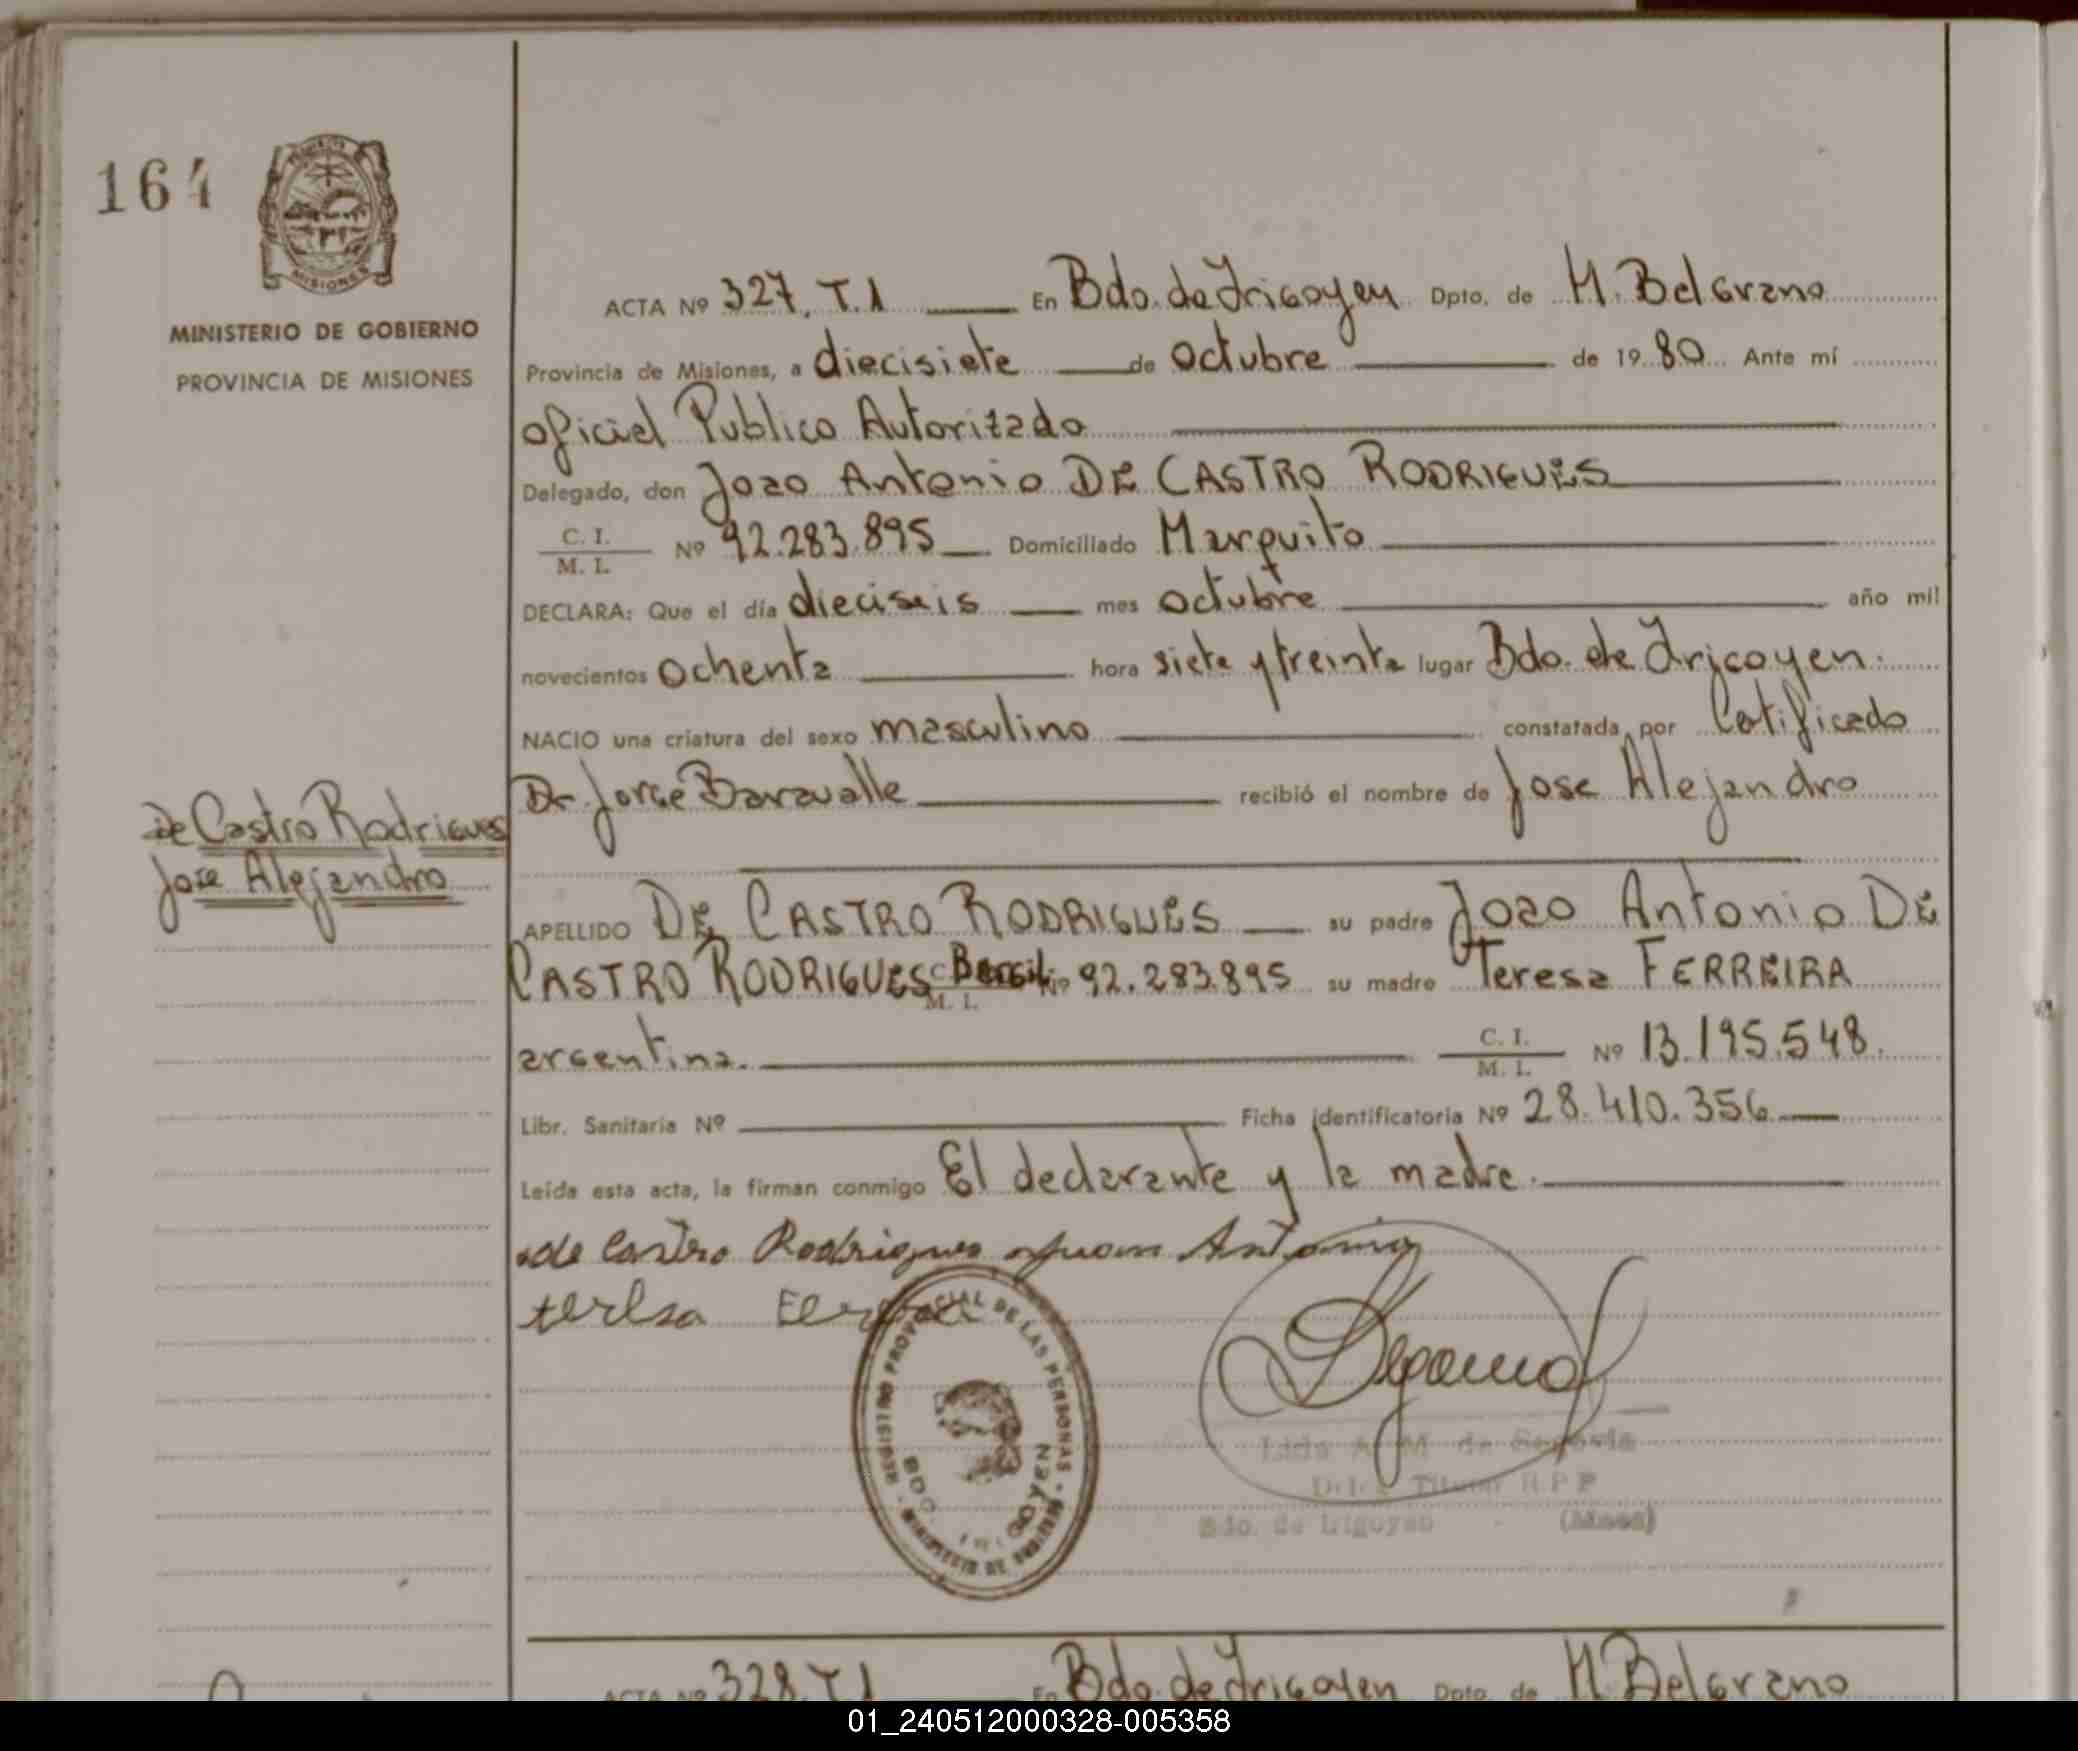 164
MISIONES
MINISTERIO DE GOBIERNO
PROVINCIA DE MISIONES
De Castro Rodrigues
Jose Alejandro
ACTA Nº 327. T.1 En Bdo. de Irigoyen Dpto. de M. Belgrano
Provincia de Misiones, a diecisiete de octubre de 1980 Ante mí
oficial Publico Autorizado
Delegado, don Joao Antonio DE CASTRO RODRIGUES
C. I. / M. I. Nº 92.283.895 Domiciliado Marquito
DECLARA: Que el día dieciseis mes octubre año mil
novecientos ochenta hora siete y treinta lugar Bdo. de Irigoyen.
NACIO una criatura del sexo masculino constatada por Cetificado
Dr Jorge Baravalle recibió el nombre de Jose Alejandro
APELLIDO DE CASTRO RODRIGUES su padre Joao Antonio DE
CASTRO RODRIGUES C. M. I. Nº 92.283.895 su madre Teresa FERREIRA
argentina. C. I. / M. I. Nº 13.195.548.
Libr. Sanitaria Nº Ficha identificatoria Nº 28.410.356
Leída esta acta, la firman conmigo El declarante y la madre.
de Castro Rodrigues Antonio
teresa
REGISTRO PROVINCIAL DE LAS PERSONAS - MINISTERIO DE GOBIERNO -
BDO. IRIGOYEN
Lida A. M. de Segovia
Deleg. Titular R P P
Bdo. de Irigoyen - (Mnes)
ACTA Nº 328. T.1 En Bdo. de Irigoyen Dpto. de M. Belgrano
01_240512000328-005358